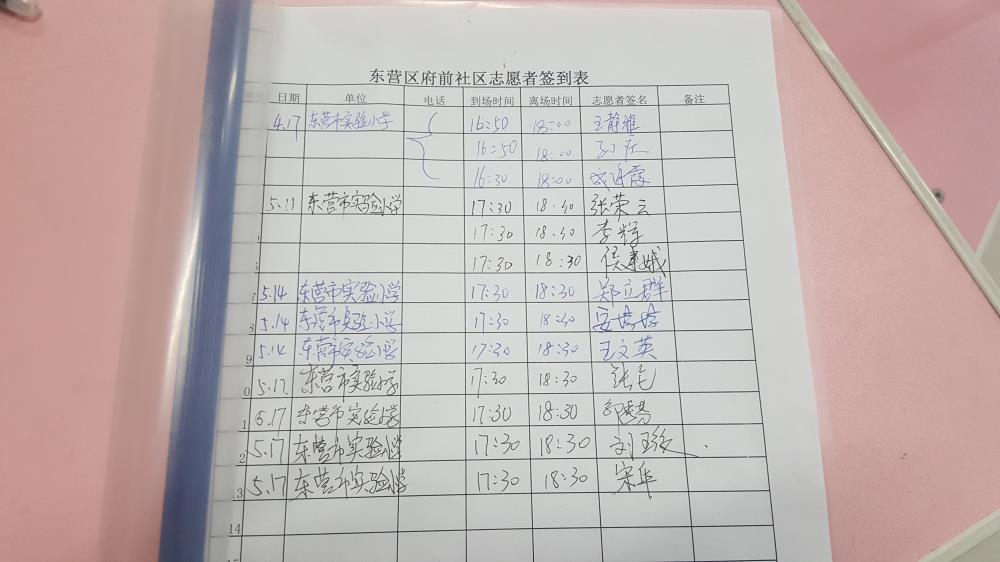 东营区府前社区志愿者签到表
日期 单位 电话 到场时间 离场时间 志愿者签名 备注
4.17 东营市实验小学 16:50 18:00 王静雅
16:50 18:00
16:30 18:00
5.11 东营市实验小学 17:30 18:30 张荣云
17:30 18:30 李辉
17:30 18:30
5.14 东营市实验小学 17:30 18:30 郑立群
5.14 东营市实验小学 17:30 18:30 安婷婷
9 5.14 东营市实验小学 17:30 18:30 王文英
0 5.17 东营市实验小学 17:30 18:30
1 5.17 东营市实验小学 17:30 18:30
2 5.17 东营市实验小学 17:30 18:30
13 5.17 东营市实验小学 17:30 18:30 宋华
14